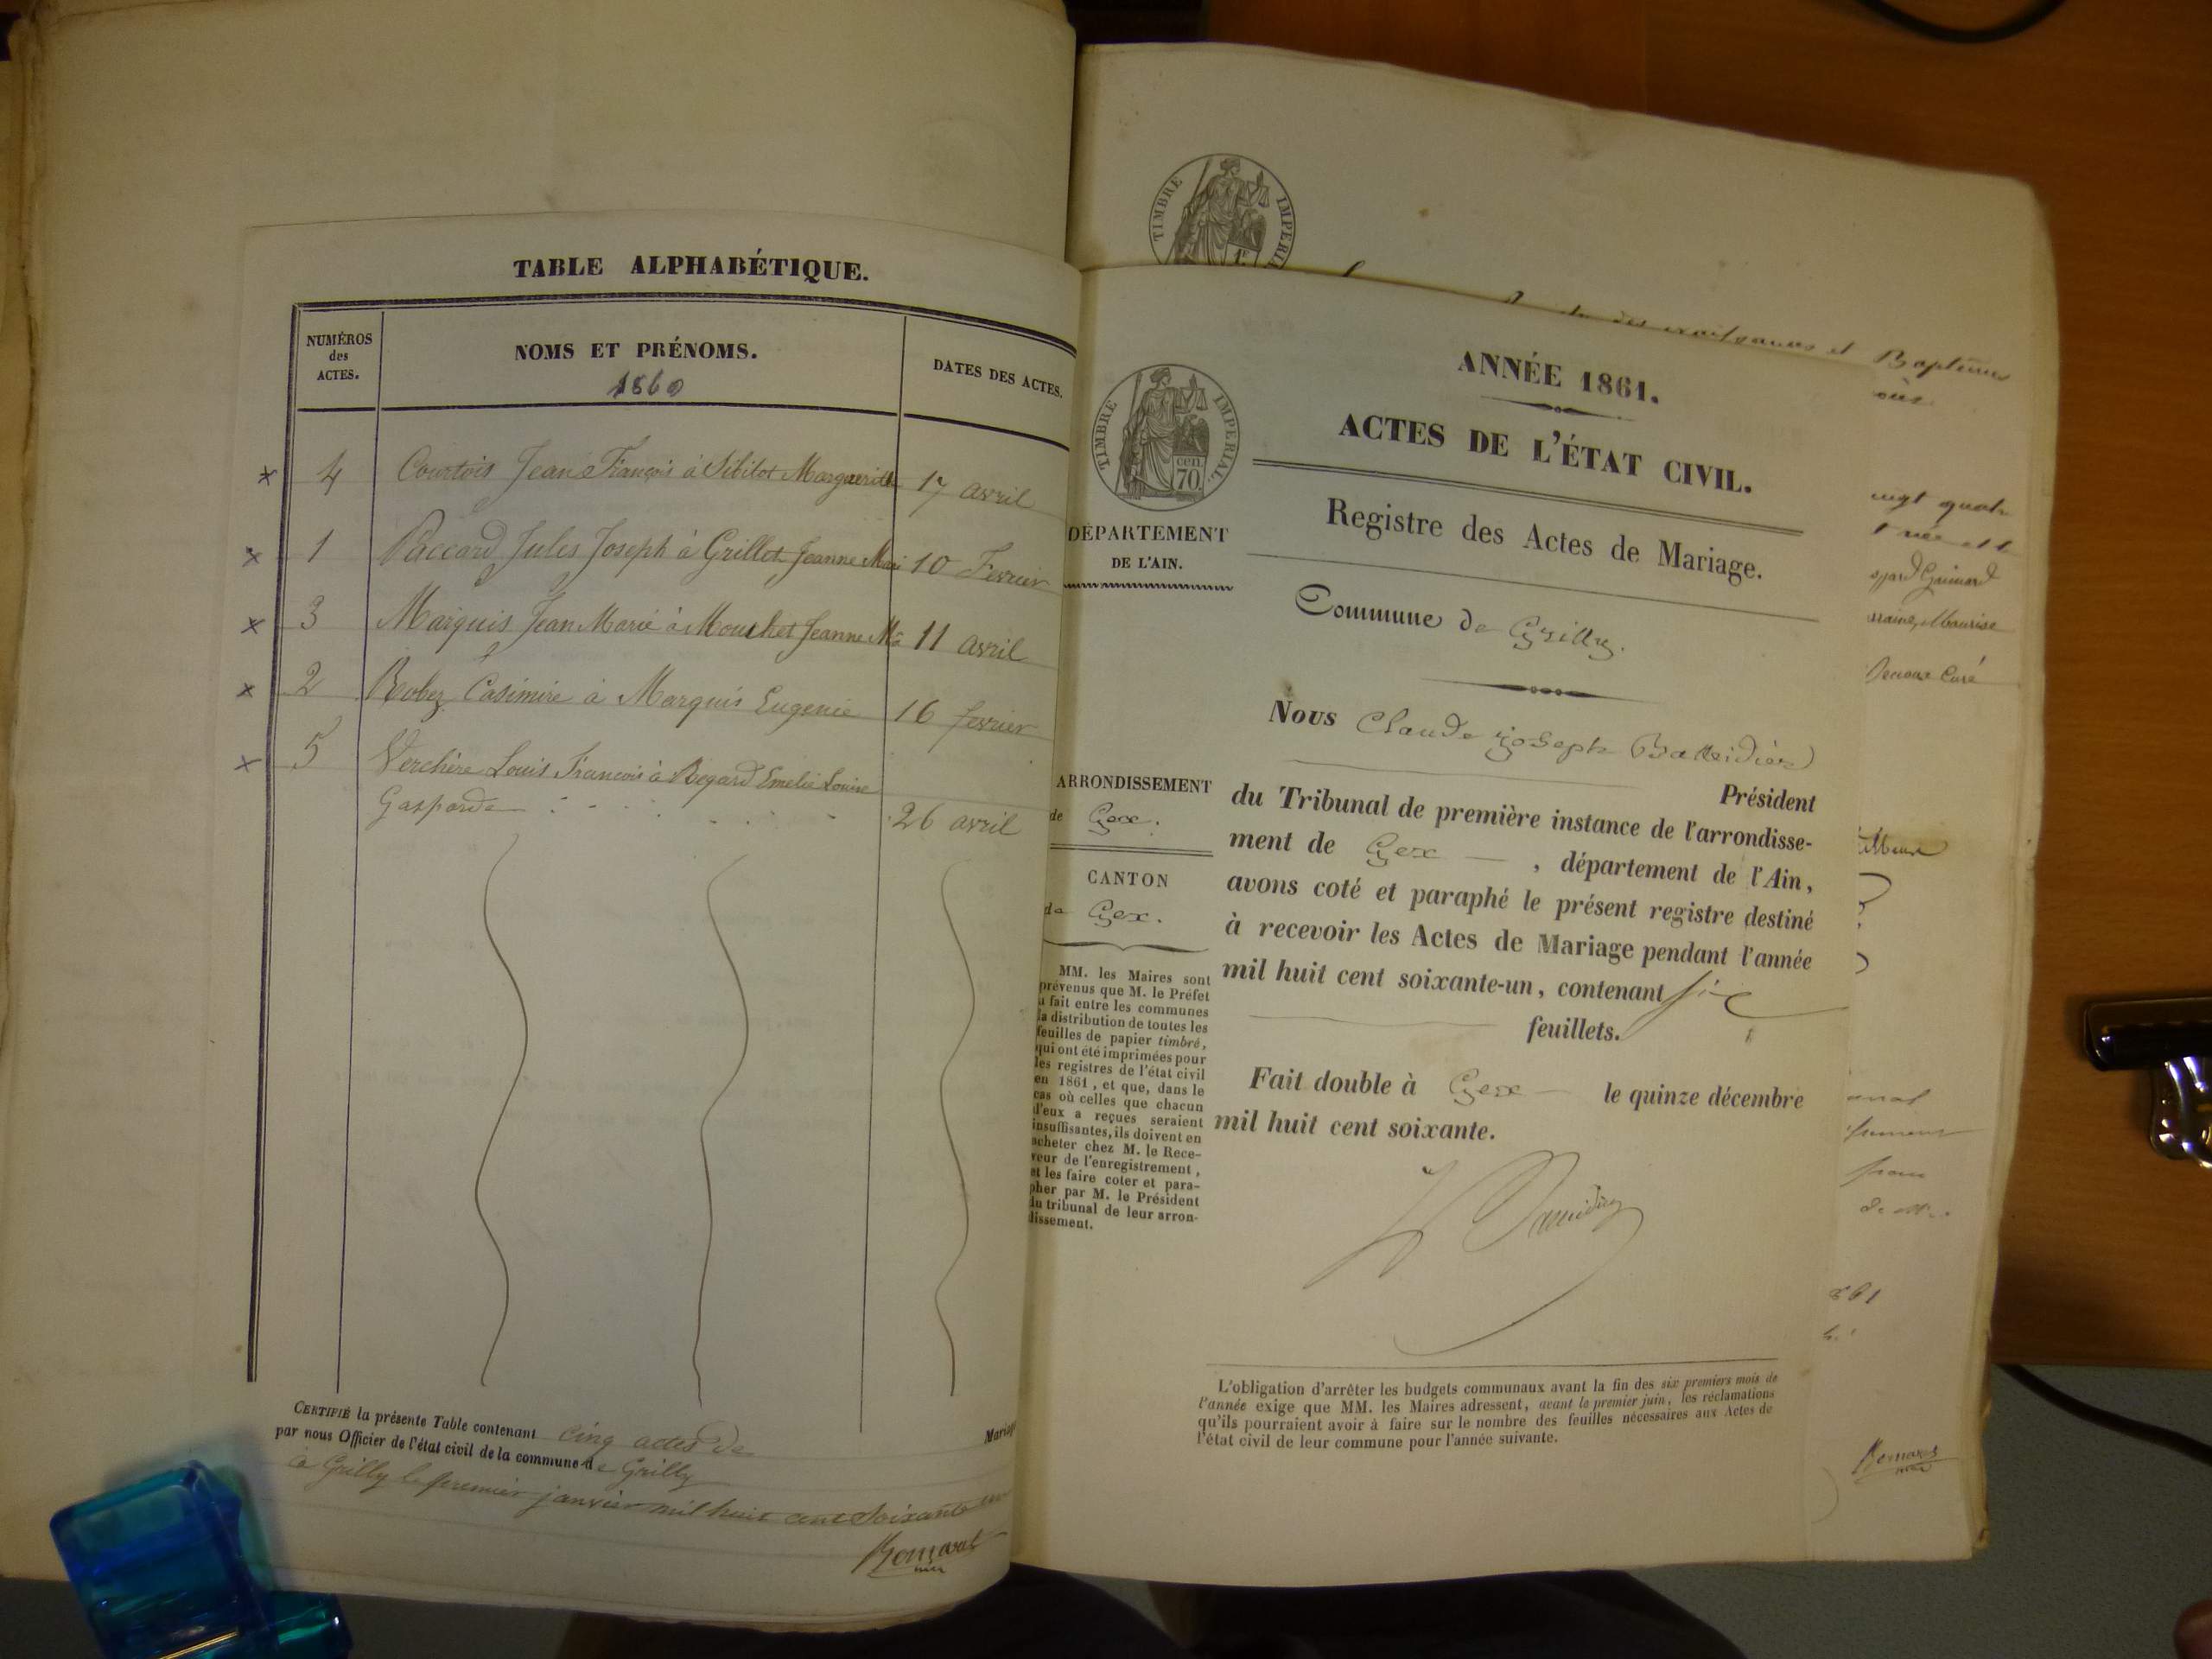 TABLE ALPHABÉTIQUE.
NUMÉROS
des
ACTES.
NOMS ET PRÉNOMS.
1860
DATES DES ACTES.
4 Courtois Jean François à Sibilot Marguerite 17 avril
1 Paccard Jules Joseph à Grillet Jeanne Mari 10 Fevrier
3 Marquis Jean Marie à Mouchet Jeanne Mie 11 avril
2 Robez Casimire à Marquis Eugenie 16 fevrier
5 Verchère Louis Francois à Regard Emelie Louise
Gasparde 26 avril
CERTIFIÉ la présente Table contenant cinq actes de Mariage
par nous Officier de l'état civil de la commune de Grilly
à Grilly le premier janvier mil huit cent Soixante un
TIMBRE IMPERIAL
1F
Baptêmes
ANNÉE 1861.
ACTES DE L'ÉTAT CIVIL.
TIMBRE IMPERIAL.
cen.
70.
DÉPARTEMENT
DE L'AIN.
Registre des Actes de Mariage.
Commune de Grilly.
Nous Claude Joseph
Président
du Tribunal de première instance de l'arrondisse-
ment de Gex, département de l'Ain,
avons coté et paraphé le présent registre destiné
à recevoir les Actes de Mariage pendant l'année
mil huit cent soixante-un, contenant six
feuillets.
Fait double à Gex le quinze décembre
mil huit cent soixante.
ARRONDISSEMENT
de Gex.
CANTON
de Gex.
MM. les Maires sont
prévenus que M. le Préfet
a fait entre les communes
la distribution de toutes les
feuilles de papier timbré,
qui ont été imprimées pour
les registres de l'état civil
en 1861, et que, dans le
cas où celles que chacun
d'eux a reçues seraient
insuffisantes, ils doivent en
acheter chez M. le Rece-
veur de l'enregistrement,
et les faire coter et para-
pher par M. le Président
du tribunal de leur arron-
dissement.
L'obligation d'arrêter les budgets communaux avant la fin des six premiers mois de
l'année exige que MM. les Maires adressent, avant le premier juin, les réclamations
qu'ils pourraient avoir à faire sur le nombre des feuilles nécessaires aux Actes de
l'état civil de leur commune pour l'année suivante.